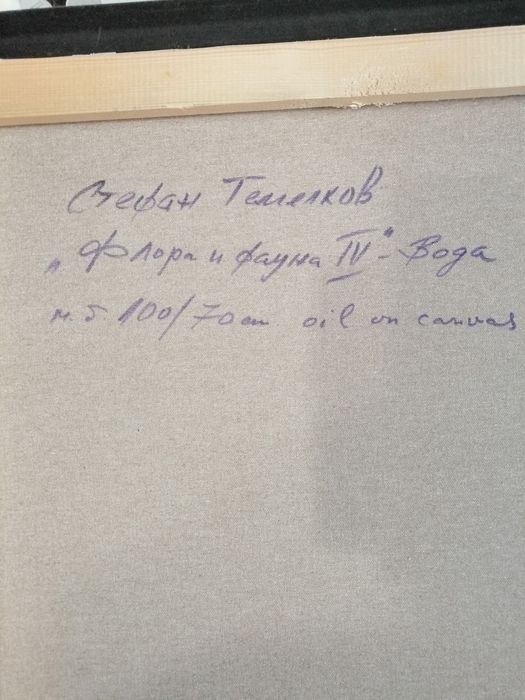 Стефан Темелков
„Флора и фауна IV“ - Вода
м.б. 100/70см oil on canvas